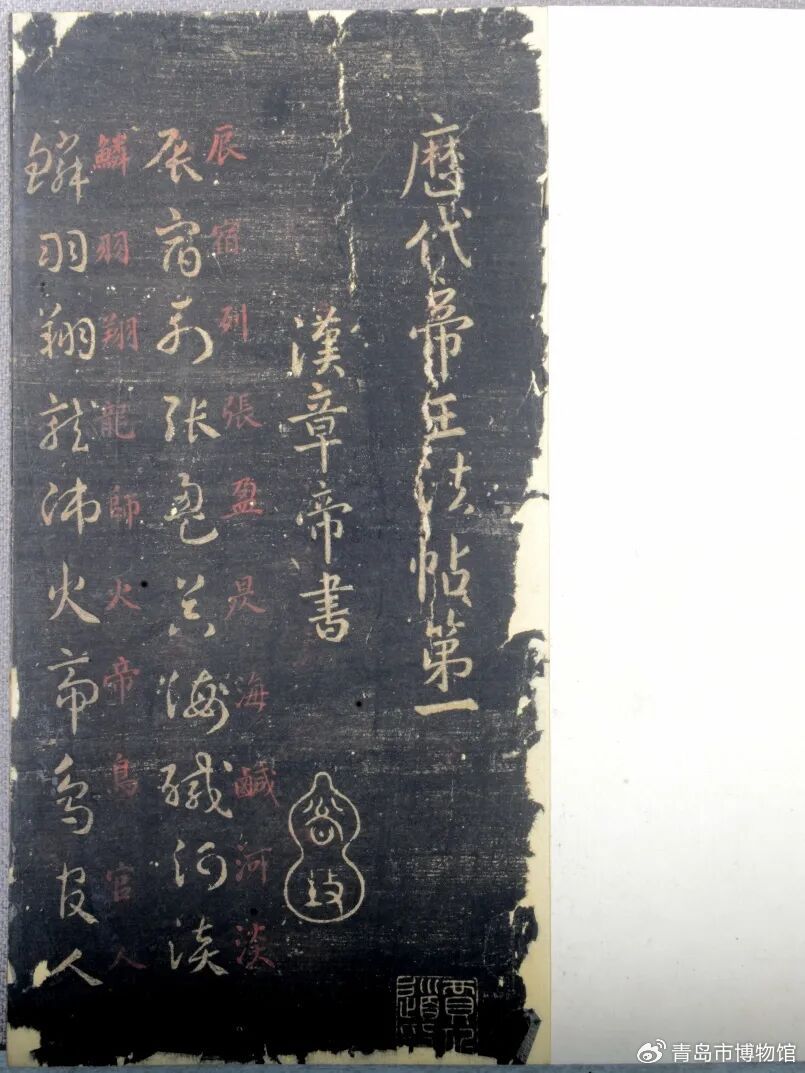 歷代帝王法帖第一
漢章帝書
辰宿列張盈昃海鹹河淡
辰宿列張盈昃海鹹河淡
鱗羽翔龍師火帝鳥官人
鱗羽翔龍師火帝鳥官人
賈似道印
青岛市博物馆